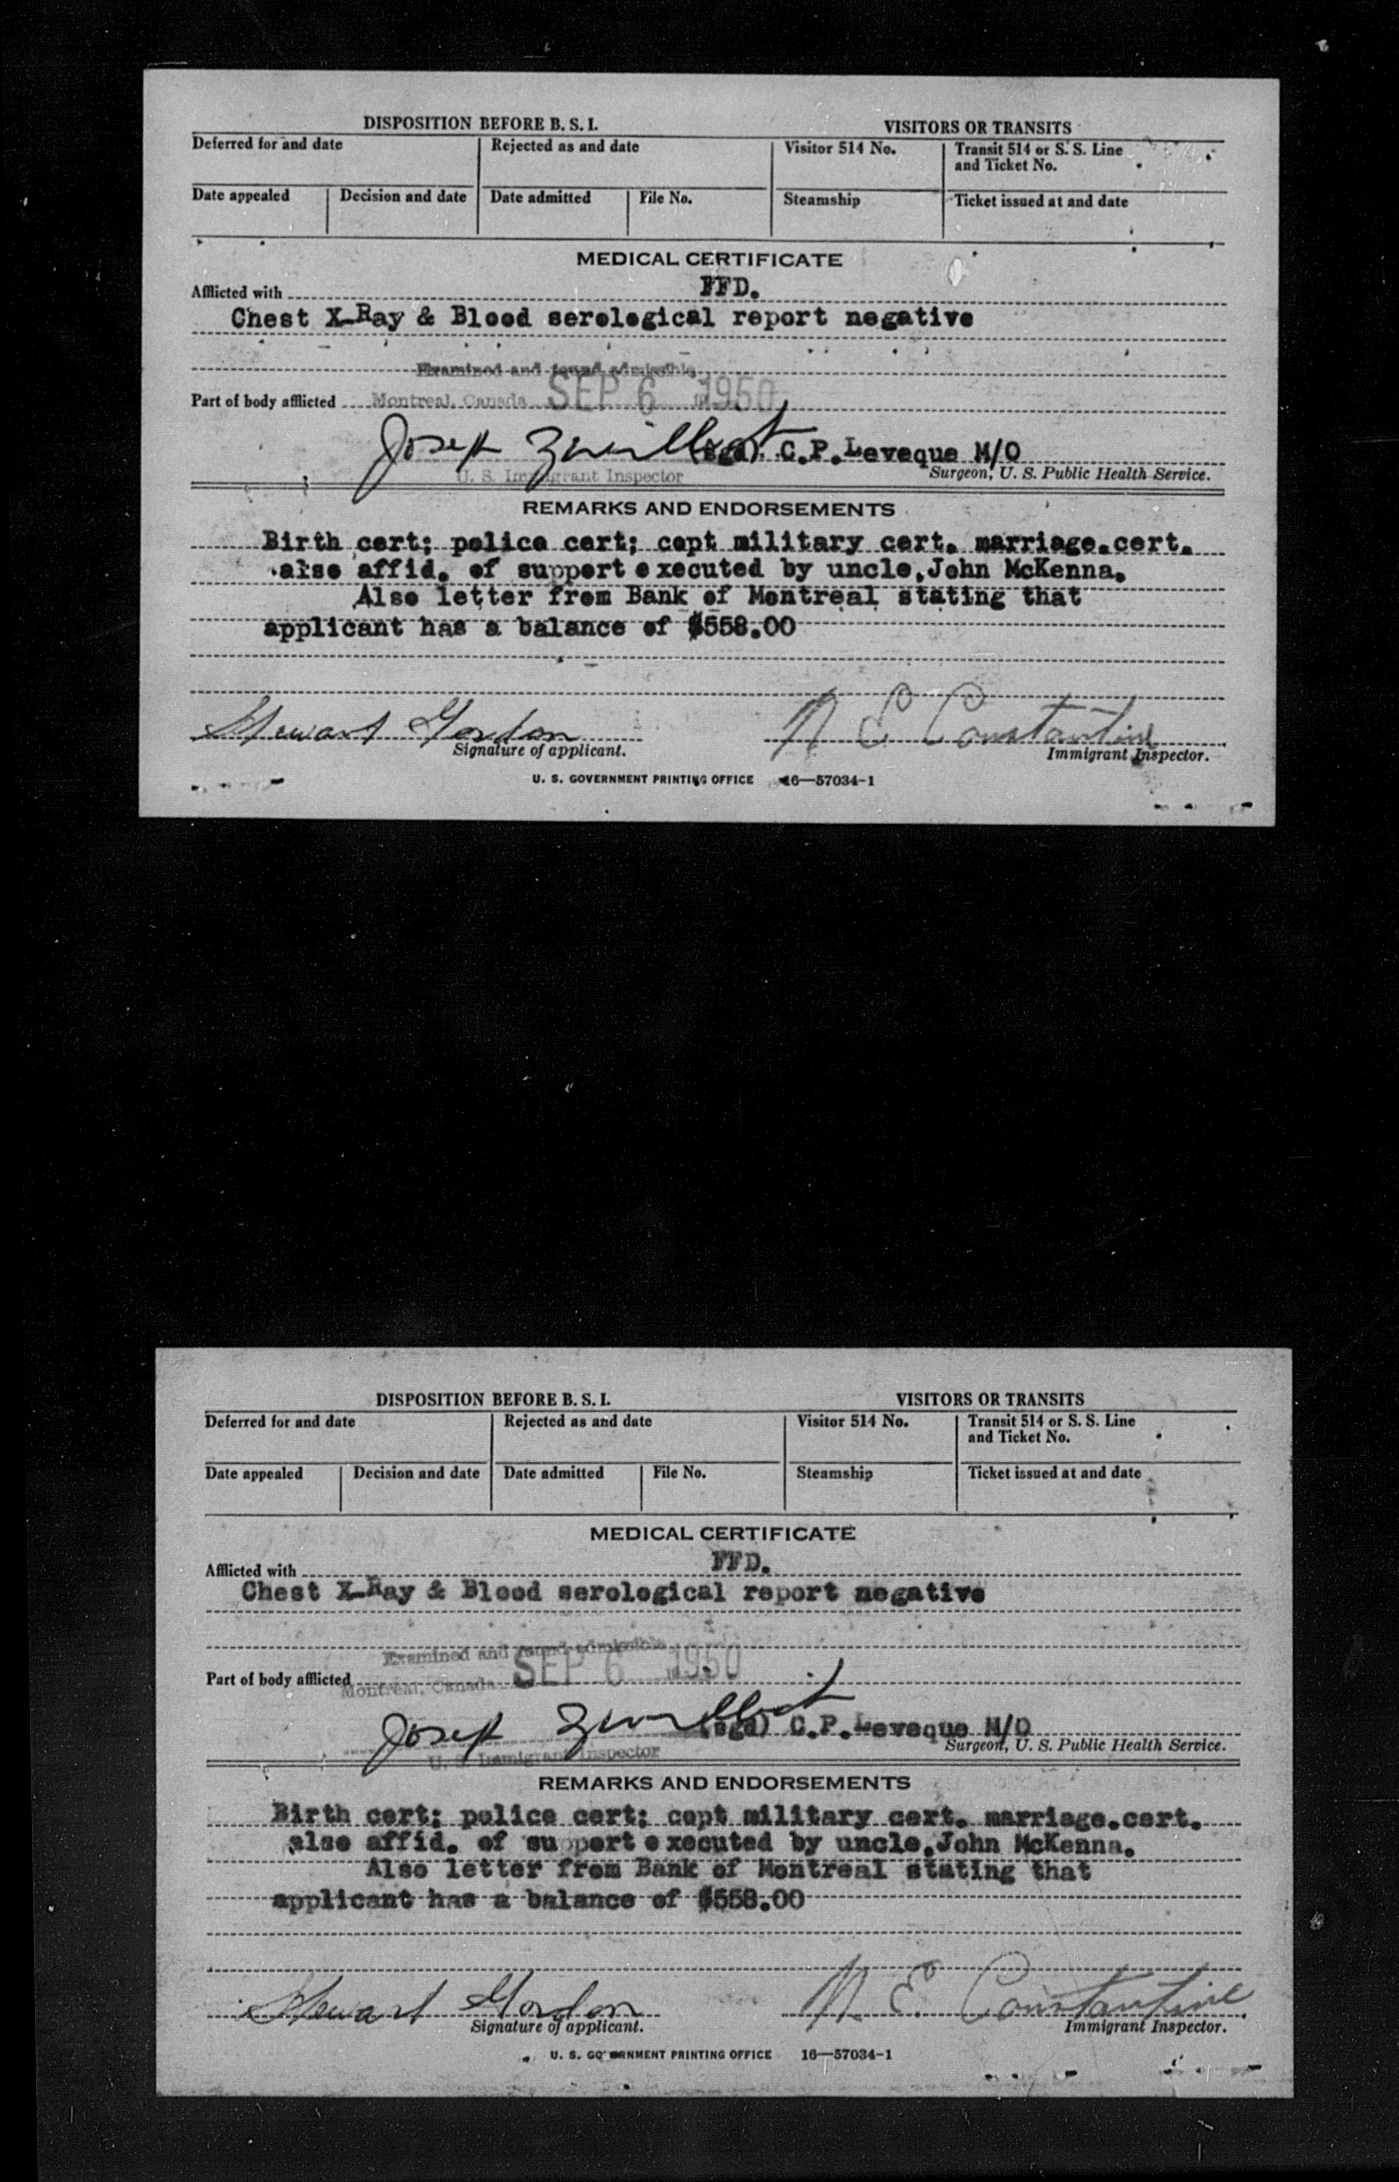 DISPOSITION BEFORE B. S. I.
VISITORS OR TRANSITS
Deferred for and date
Rejected as and date
Visitor 514 No.
Transit 514 or S. S. Line
and Ticket No.
Date appealed
Decision and date
Date admitted
File No.
Steamship
Ticket issued at and date
MEDICAL CERTIFICATE
Afflicted with FFD.
Chest X-Ray & Blood serological report negative
Examined and found admissible
Part of body afflicted Montreal, Canada SEP 6 1950
Joseph (sgd) C.P.Leveque M/O
U. S. Immigrant Inspector
Surgeon, U. S. Public Health Service.
REMARKS AND ENDORSEMENTS
Birth cert; police cert; cept military cert. marriage.cert.
also affid. of support executed by uncle,John McKenna.
Also letter from Bank of Montreal stating that
applicant has a balance of $558.00
Stewart Gordon
N E Constantine
Signature of applicant.
Immigrant Inspector.
U. S. GOVERNMENT PRINTING OFFICE 16—57034-1
DISPOSITION BEFORE B. S. I.
VISITORS OR TRANSITS
Deferred for and date
Rejected as and date
Visitor 514 No.
Transit 514 or S. S. Line
and Ticket No.
Date appealed
Decision and date
Date admitted
File No.
Steamship
Ticket issued at and date
MEDICAL CERTIFICATE
Afflicted with FFD.
Chest X-Ray & Blood serological report negative
Examined and found admissible
Part of body afflicted Montreal, Canada SEP 6 1950
Joseph (sgd) C.P.Leveque M/O
U. S. Immigrant Inspector
Surgeon, U. S. Public Health Service.
REMARKS AND ENDORSEMENTS
Birth cert; police cert; cept military cert. marriage.cert.
also affid. of support executed by uncle,John McKenna.
Also letter from Bank of Montreal stating that
applicant has a balance of $558.00
Stewart Gordon
N E Constantine
Signature of applicant.
Immigrant Inspector.
U. S. GOVERNMENT PRINTING OFFICE 16—57034-1